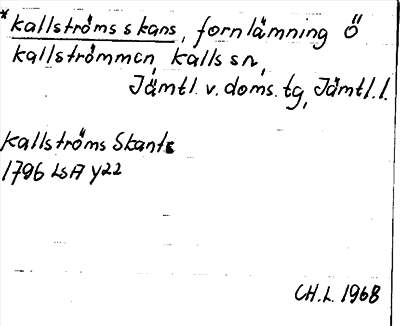 *Kallströms skans, fornlämning Ö
Kallströmmen, Kalls sn,
Jämtl. v. doms. tg, Jämtl. l.
Kallströms Skants
1796 LSA Y22
CH.L. 1968